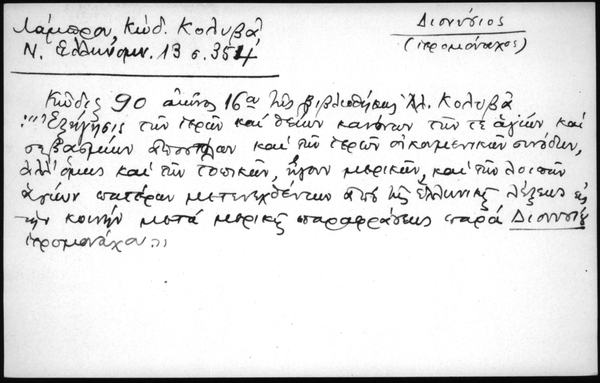 Λάμπρου, Κώδ. Κολυβᾶ
Ν. Ἑλληνομν. 13 σ. 354
Διονύσιος
(ἱερομόναχος)
Κῶδιξ 90 αἰῶνος 16ου τῆς βιβλιοθήκης Ἀλ. Κολυβᾶ
:"Ἐξήγησις τῶν ἱερῶν καὶ θείων κανόνων τῶν τε ἁγίων καὶ
σεβασμίων ἀποστόλων καὶ τῶν ἱερῶν οἰκουμενικῶν συνόδων,
ἀλλ' ὅμως καὶ τῶν τοπικῶν, ἤγουν μερικῶν, καὶ τῶν λοιπῶν
ἁγίων πατέρων μετενεχθέντων ἀπὸ τῆς ἑλληνικῆς λέξεως εἰς
τὴν κοινὴν μετὰ μερικῆς παραφράσεως παρὰ Διονυσίου
ἱερομονάχου"